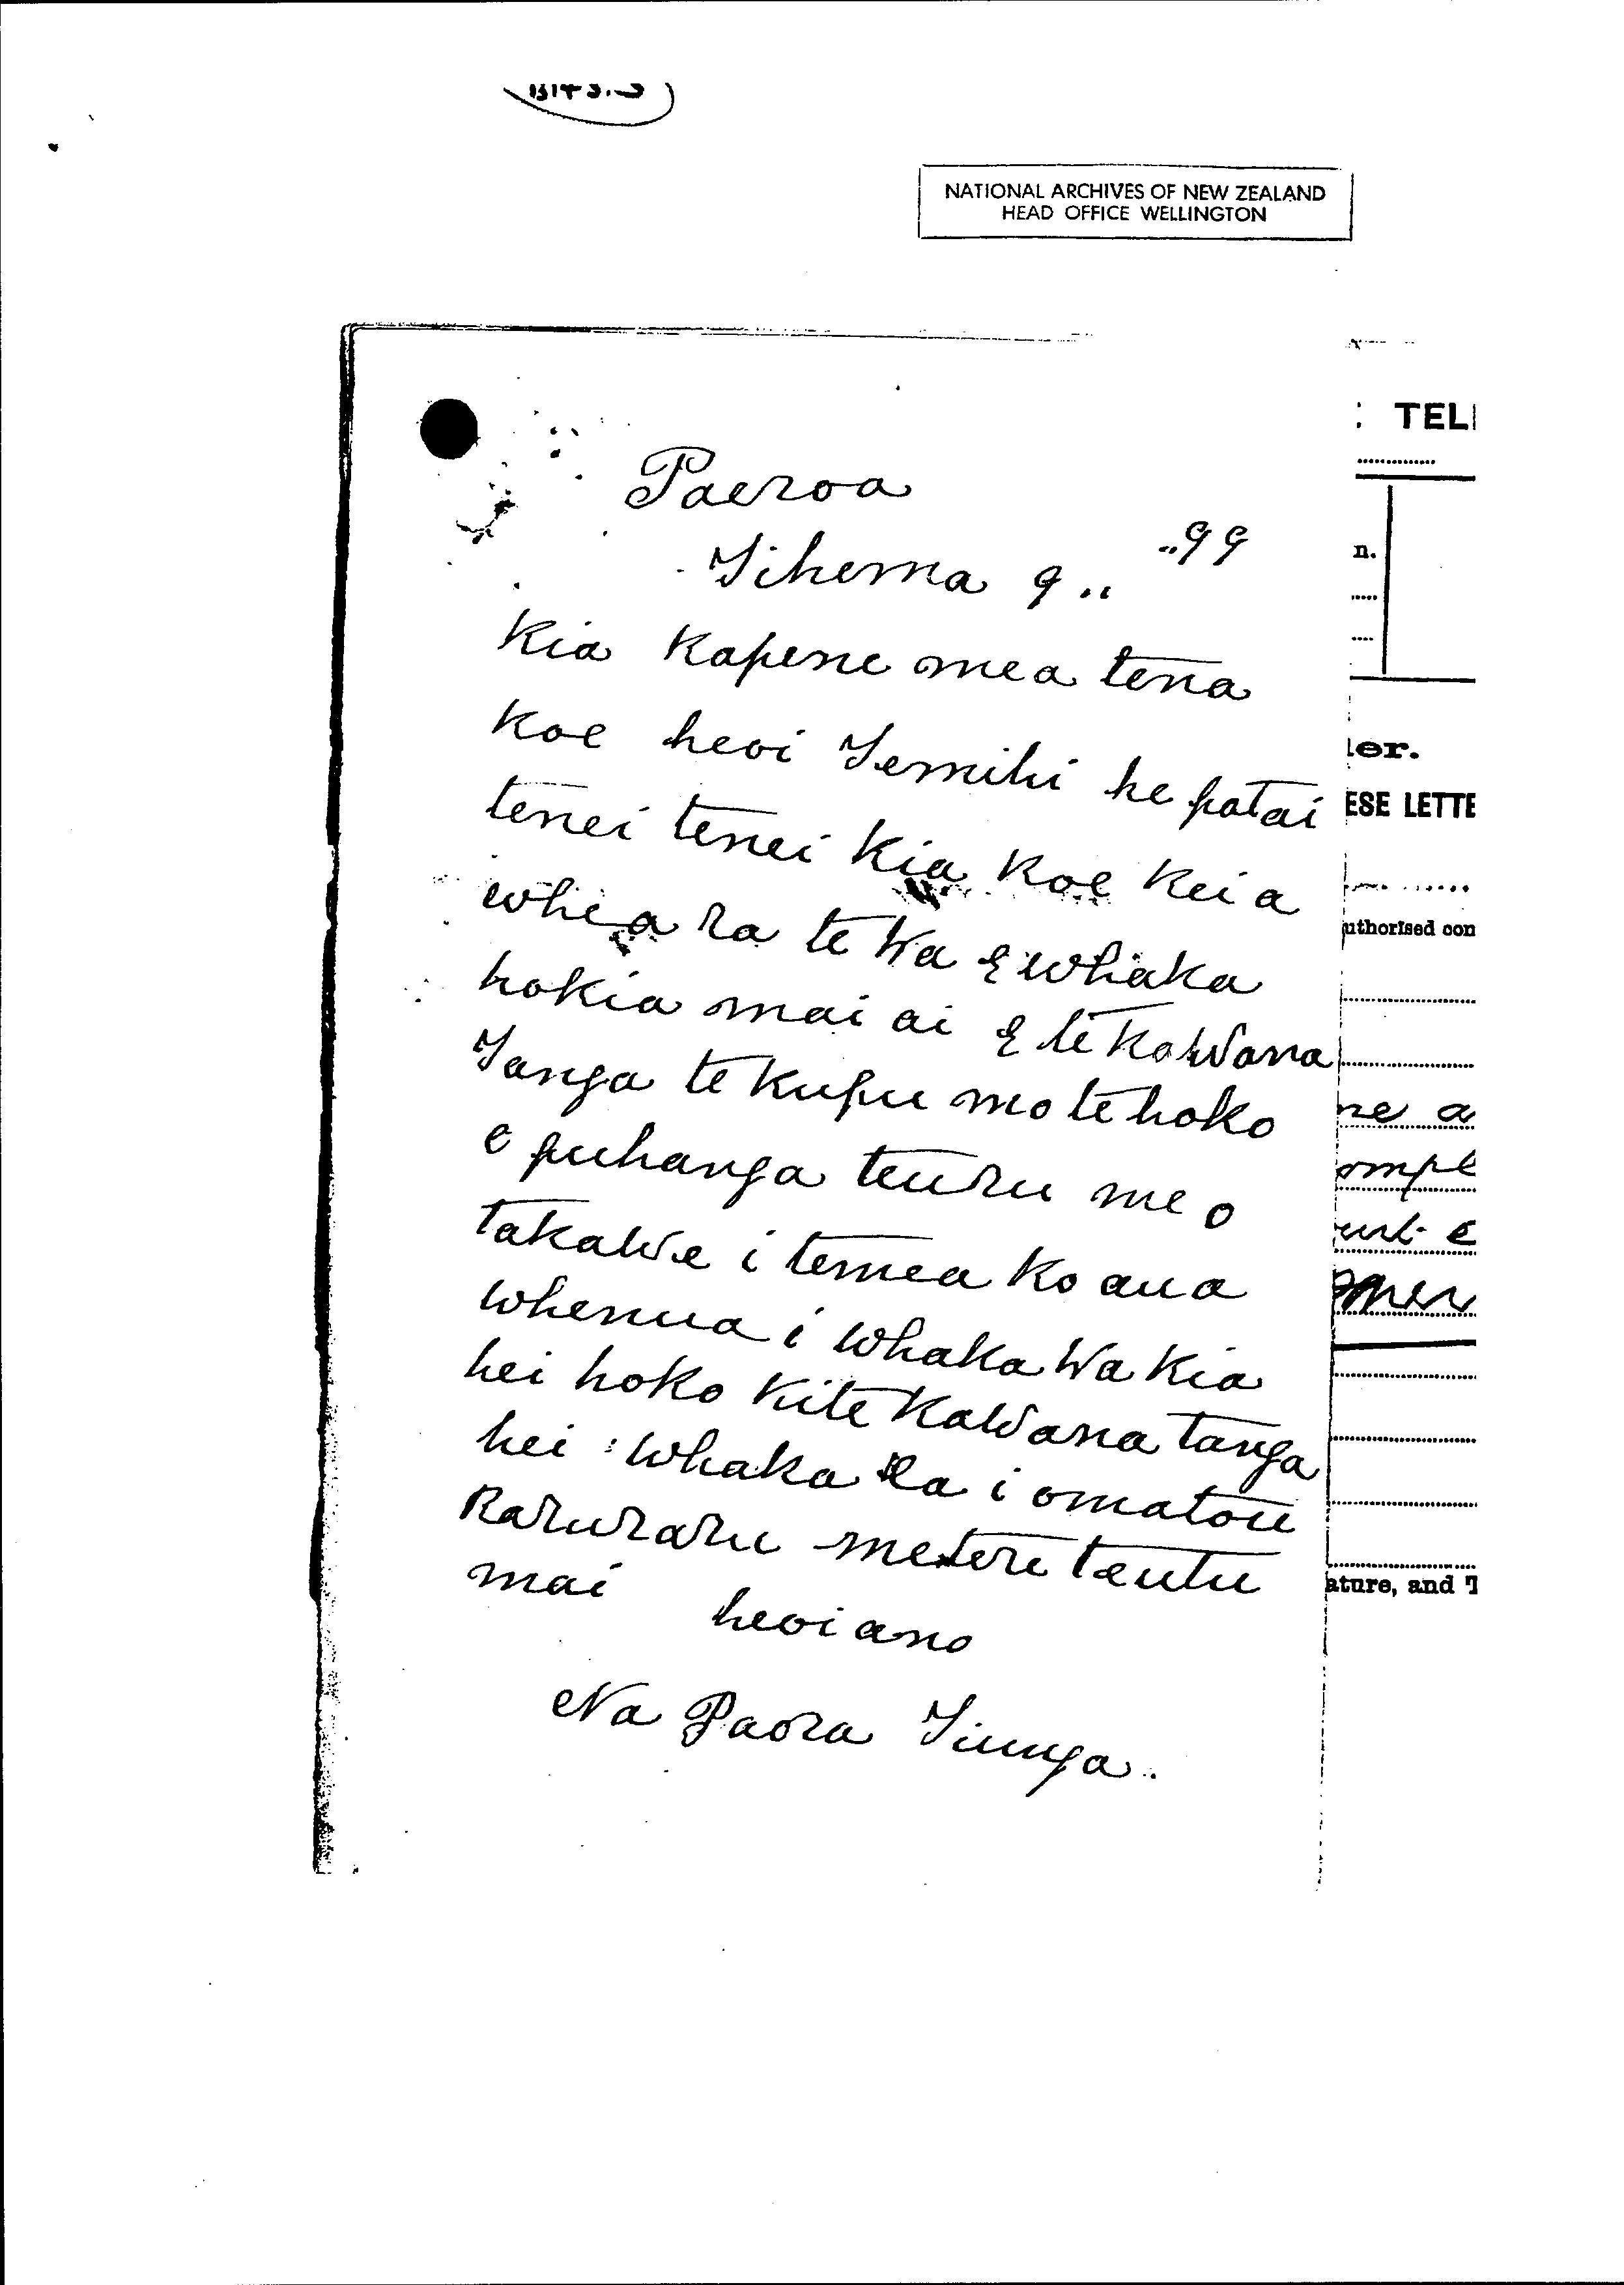 NATIONAL ARCHIVES OF NEW ZEALAND
HEAD OFFICE WELLINGTON
Paeroa
Tihema 9 .. ..99
Kia Kapene mea tena
Koe heoi Temihi he patai
tenei tenei Kia Koe Kei a
whea ra te Wa E whaka
hokia mai ai E te KaWana
Tanga te Kupu mo te hoko
o puhanga teuru me o
takaWe i temea Ko aua
Whenua i Whaka Wa Kia
hei hoko Kite KaWana tanga
hei Whaka Ra i omatou
Raruraru metere tautu
mai heoi ano
Na Paora Tiunga.
: TEL
n.
ler.
ESE LETTE
uthorised con
ne a
ompl
ature, and T